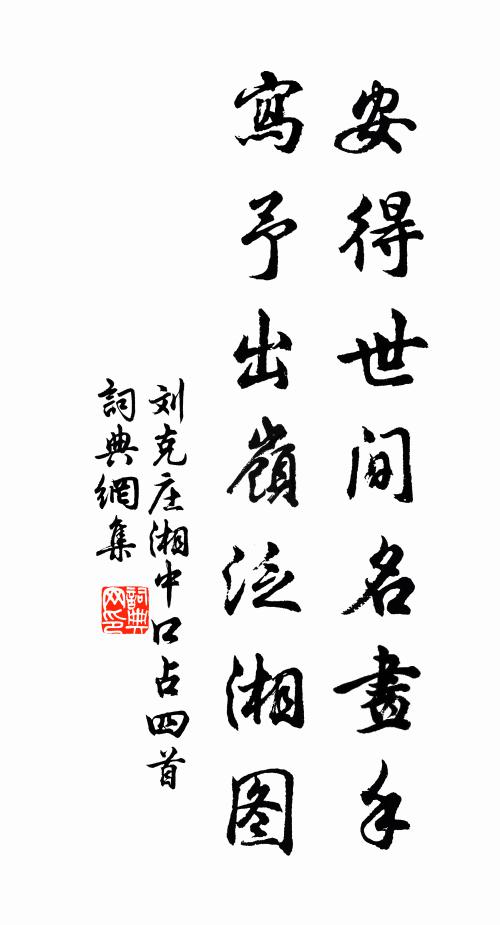 安得世间名畫手
寫予出嶺泛湘图
刘克庄湘中口占四首
詞典網集
詞典网印